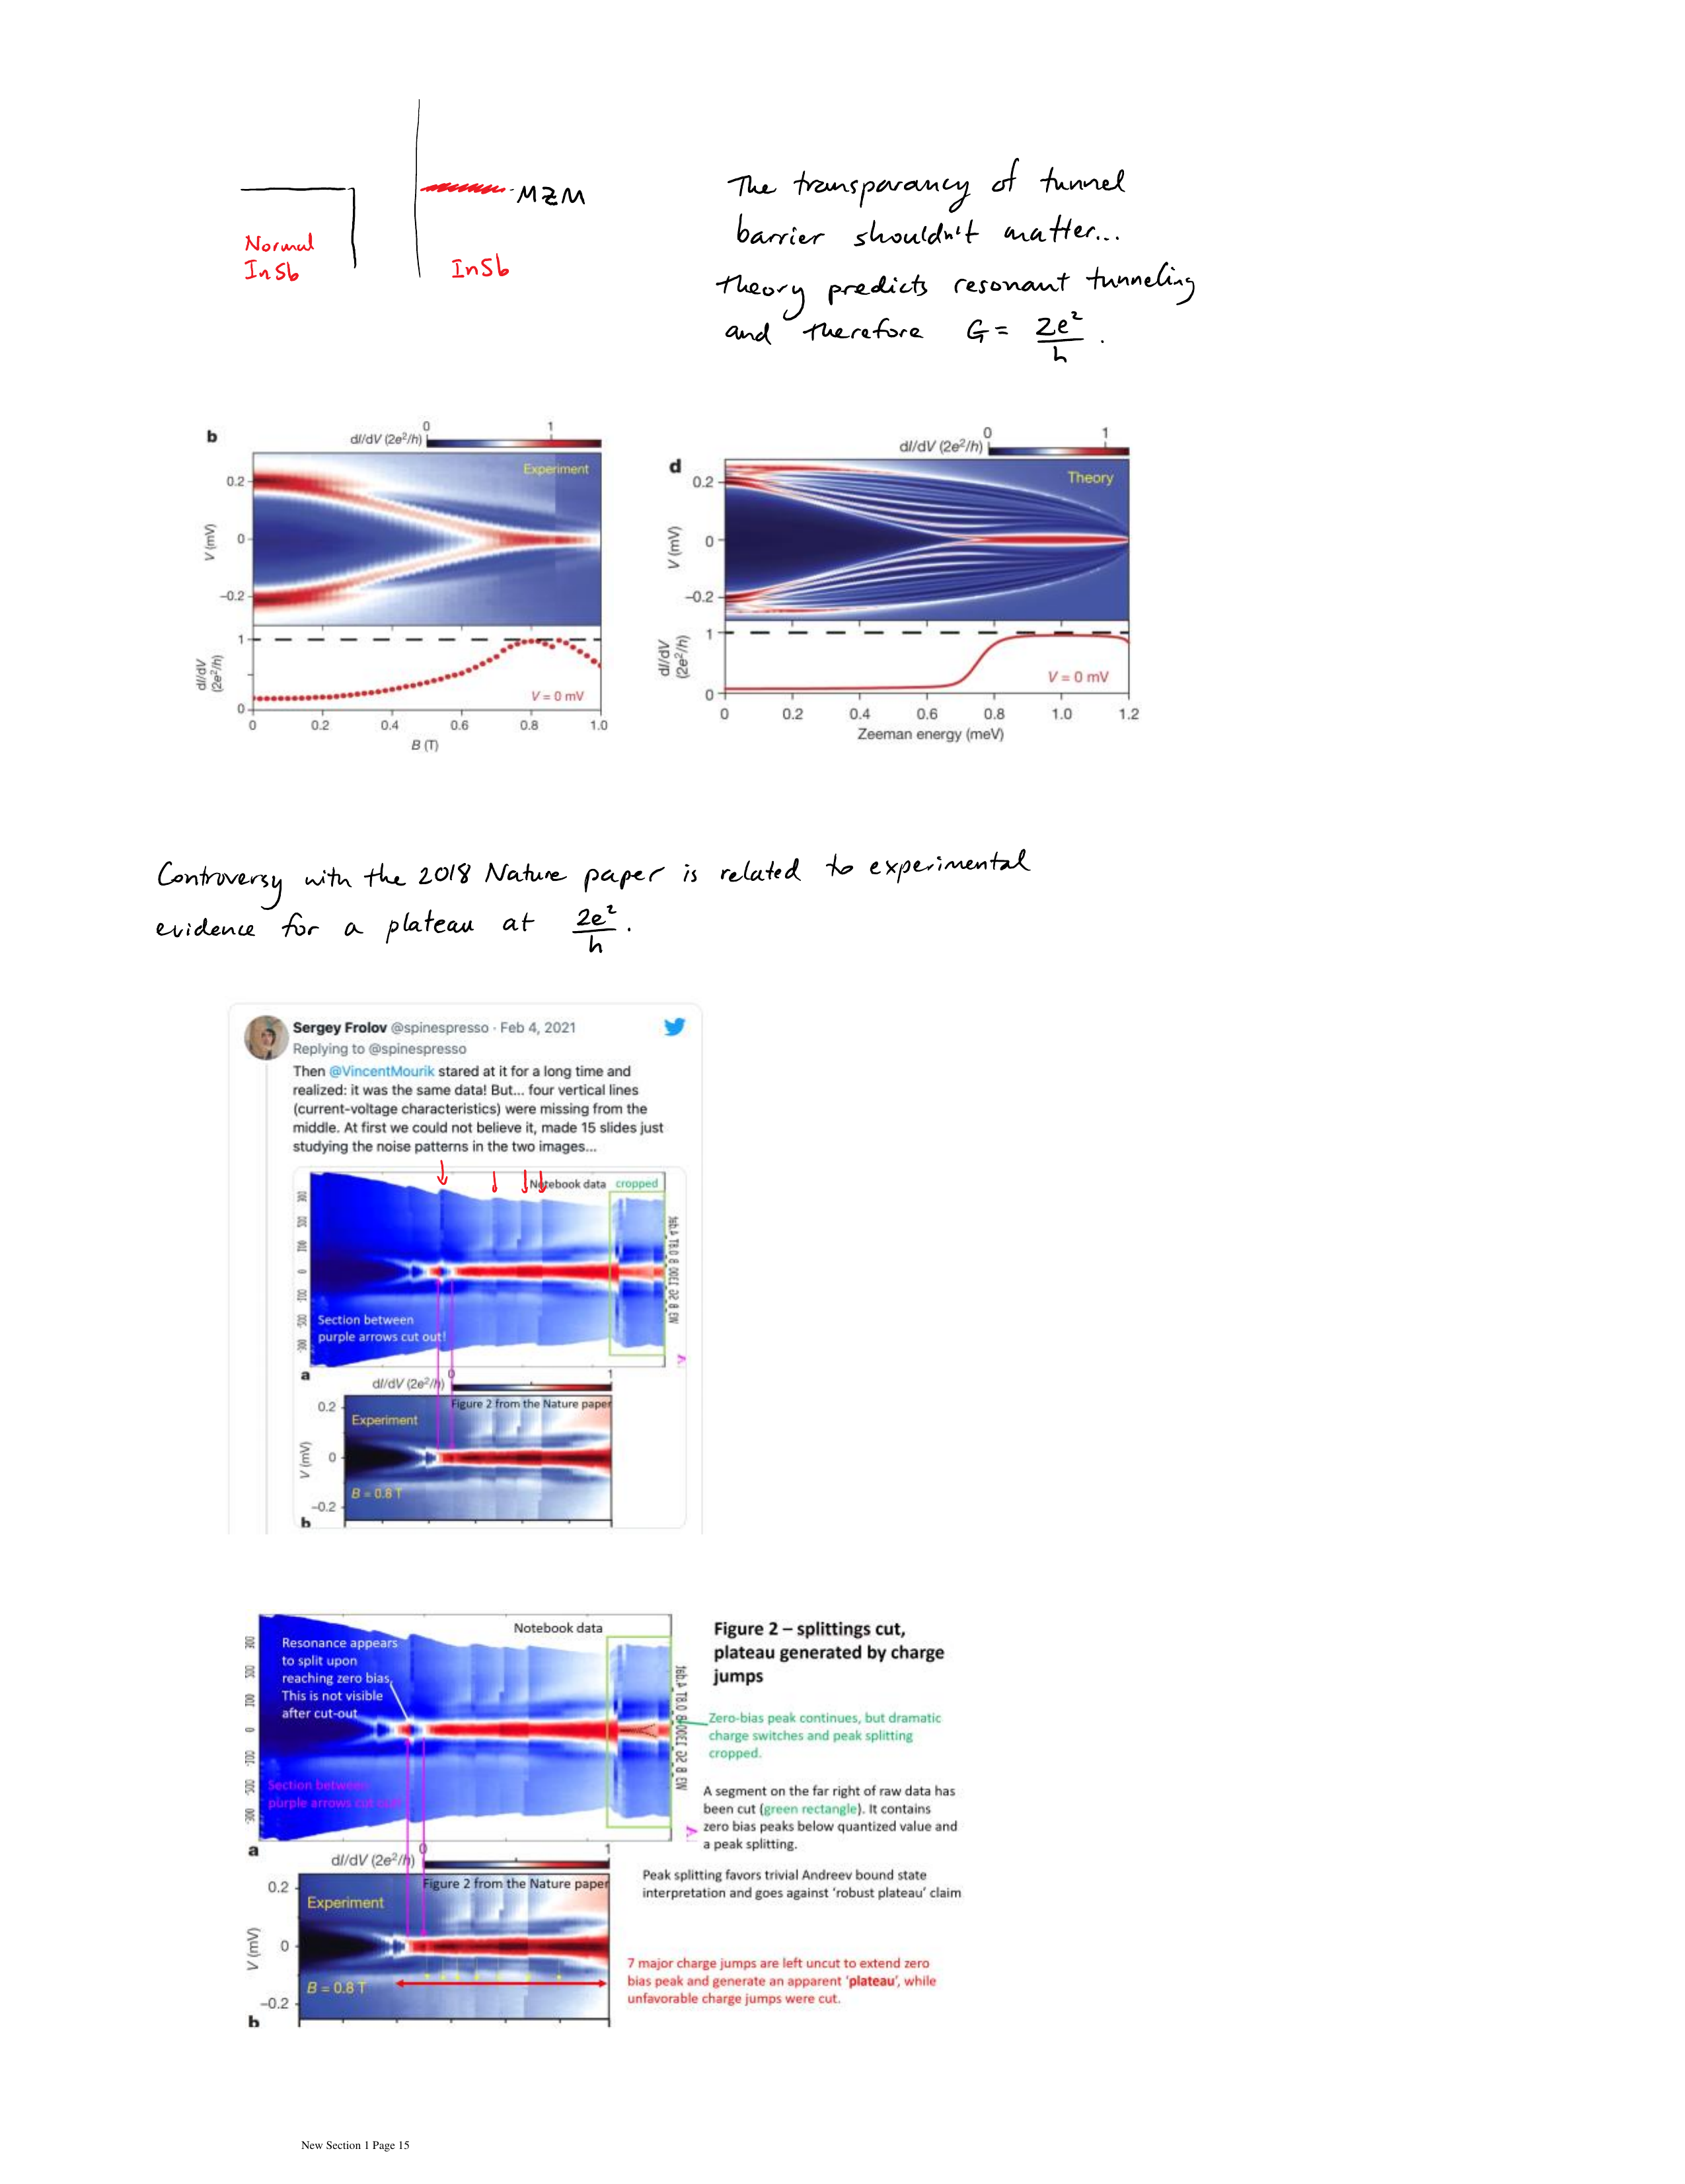 MZM
Normal
InSb
InSb
The transparancy of tunnel
barrier shouldn't matter...
theory predicts resonant tunneling
and therefore G = 2e²/h.
b
dI/dV (2e²/h)
0 1
Experiment
0.2
0
−0.2
V (mV)
1
0
dI/dV
(2e²/h)
V = 0 mV
0 0.2 0.4 0.6 0.8 1.0
B (T)
d
dI/dV (2e²/h)
0 1
Theory
0.2
0
−0.2
V (mV)
1
0
dI/dV
(2e²/h)
V = 0 mV
0 0.2 0.4 0.6 0.8 1.0 1.2
Zeeman energy (meV)
Controversy with the 2018 Nature paper is related to experimental
evidence for a plateau at 2e²/h.
Sergey Frolov @spinespresso · Feb 4, 2021
Replying to @spinespresso
Then @VincentMourik stared at it for a long time and
realized: it was the same data! But... four vertical lines
(current-voltage characteristics) were missing from the
middle. At first we could not believe it, made 15 slides just
studying the noise patterns in the two images...
Notebook data cropped
Section between
purple arrows cut out!
a
dI/dV (2e²/h)
0 1
Figure 2 from the Nature paper
Experiment
0.2
0
−0.2
V (mV)
B = 0.8 T
b
Notebook data
Resonance appears
to split upon
reaching zero bias.
This is not visible
after cut-out
Section between
purple arrows cut out!
a
dI/dV (2e²/h)
0 1
Figure 2 from the Nature paper
Experiment
0.2
0
−0.2
V (mV)
B = 0.8 T
b
Figure 2 – splittings cut,
plateau generated by charge
jumps
Zero-bias peak continues, but dramatic
charge switches and peak splitting
cropped.
A segment on the far right of raw data has
been cut (green rectangle). It contains
zero bias peaks below quantized value and
a peak splitting.
Peak splitting favors trivial Andreev bound state
interpretation and goes against ‘robust plateau’ claim
7 major charge jumps are left uncut to extend zero
bias peak and generate an apparent ‘plateau’, while
unfavorable charge jumps were cut.
New Section 1 Page 15